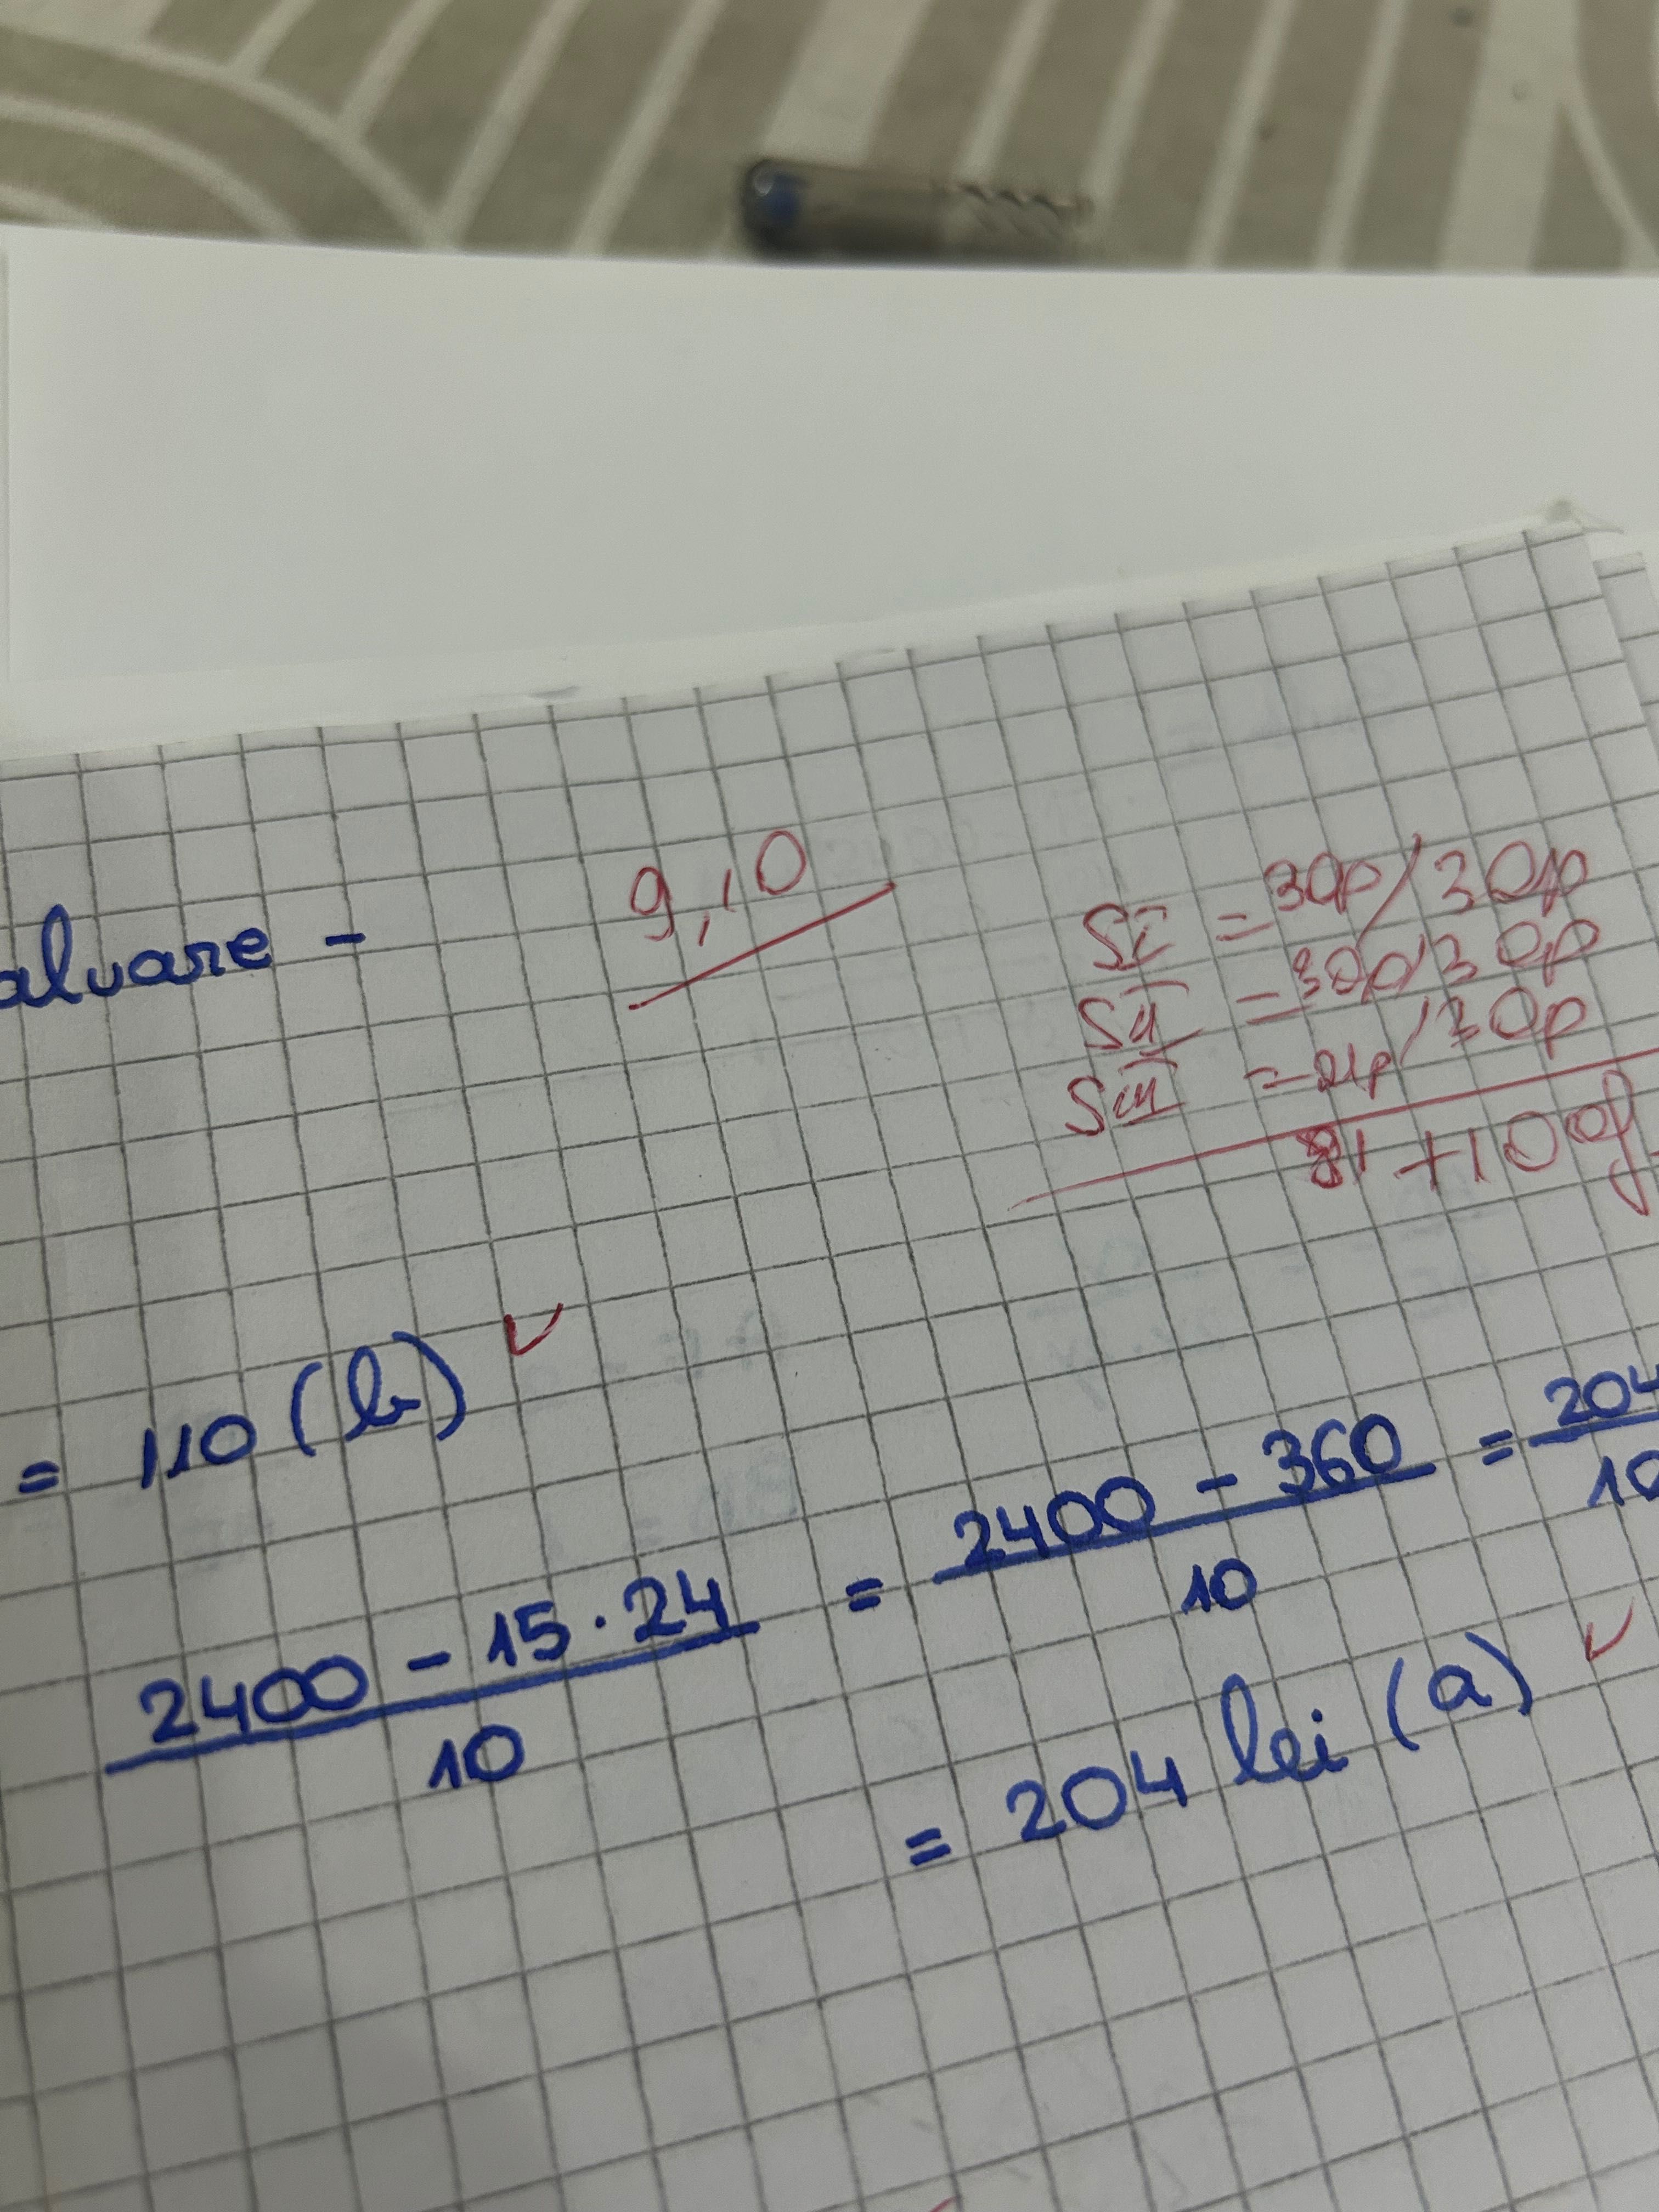 alvare - 9,10
SI = 30p/30p
SII = 30p/30p
SIII = 21p/30p
81 + 10 of
= 110 (b) ✓
2400 - 15 · 24 / 10 = 2400 - 360 / 10 = 204 / 10
= 204 lei (a) ✓